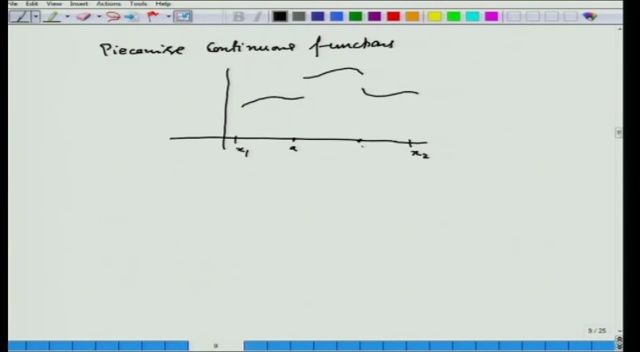 File Edit View Insert Actions Tools Help
Piecewise Continuous functions
x1 a x2
9 / 25
9